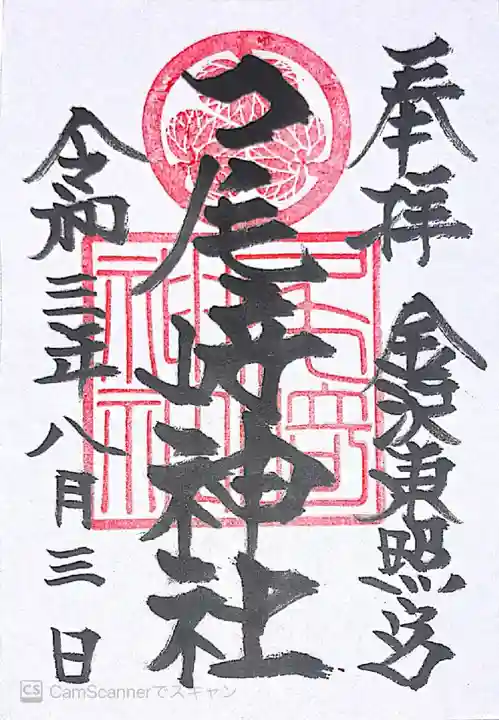 奉拝
金沢東照宮
尾崎神社
尾崎
神社
令和三年八月三日
CS CamScannerでスキャン